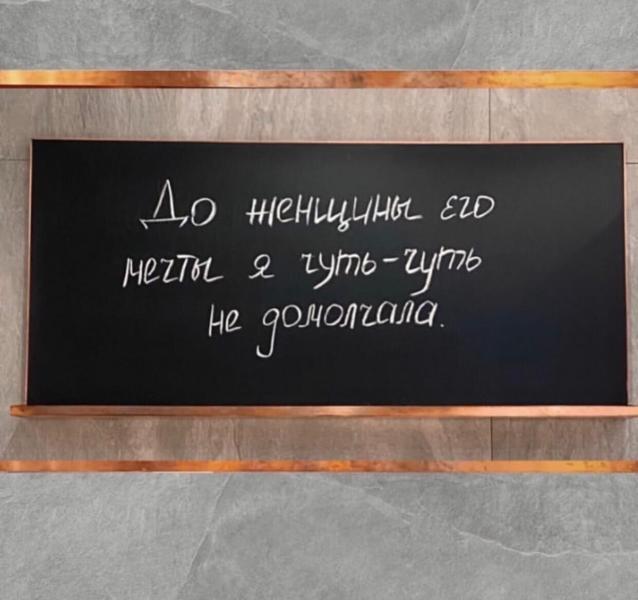 До женщины его
мечты я чуть-чуть
не домолчала.